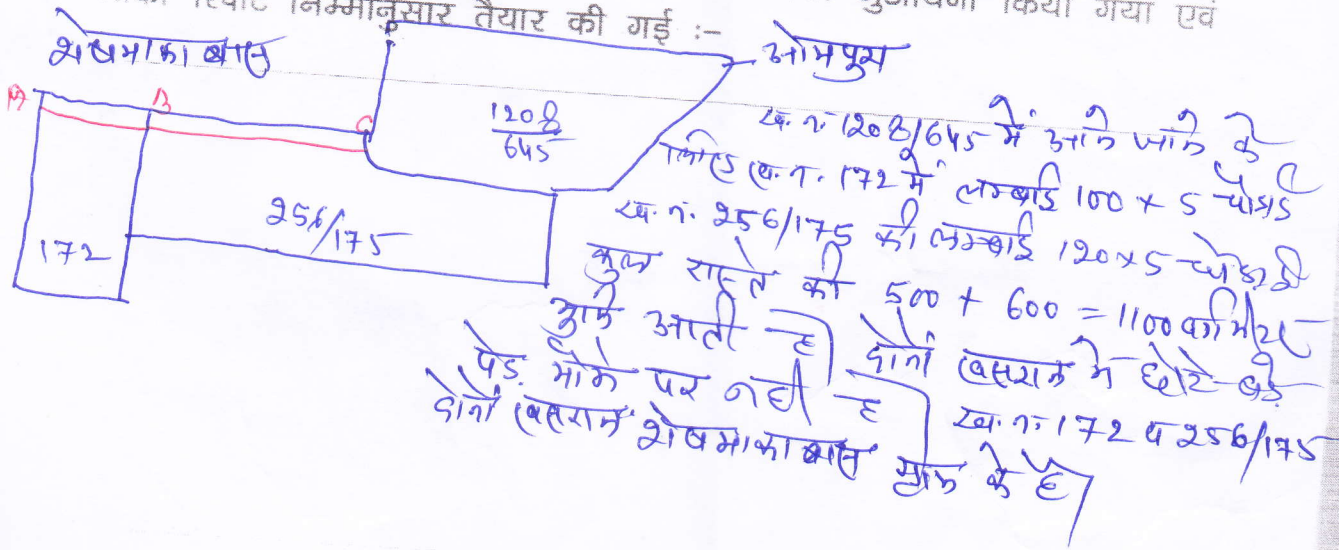 रिपोर्ट निम्नानुसार तैयार की गई :- किया गया एवं
शेषमा का बास
ओमपुरा
A B C
1208/645
256/175
172
ख. नं. 1208/645 में आने जाने के
लिए ख. नं. 172 में लम्बाई 100 x 5 चौडाई
ख. नं. 256/175 की लम्बाई 120x5 चौडाई
कुल रास्ते की 500 + 600 = 1100 वर्ग मीटर
भूमि आती है। दोनों खसरान में छोटे-बड़े
पेड़ मौके पर नही है। ख. नं. 172 व 256/175
दोनों खसरान शेषमा का बास के है।